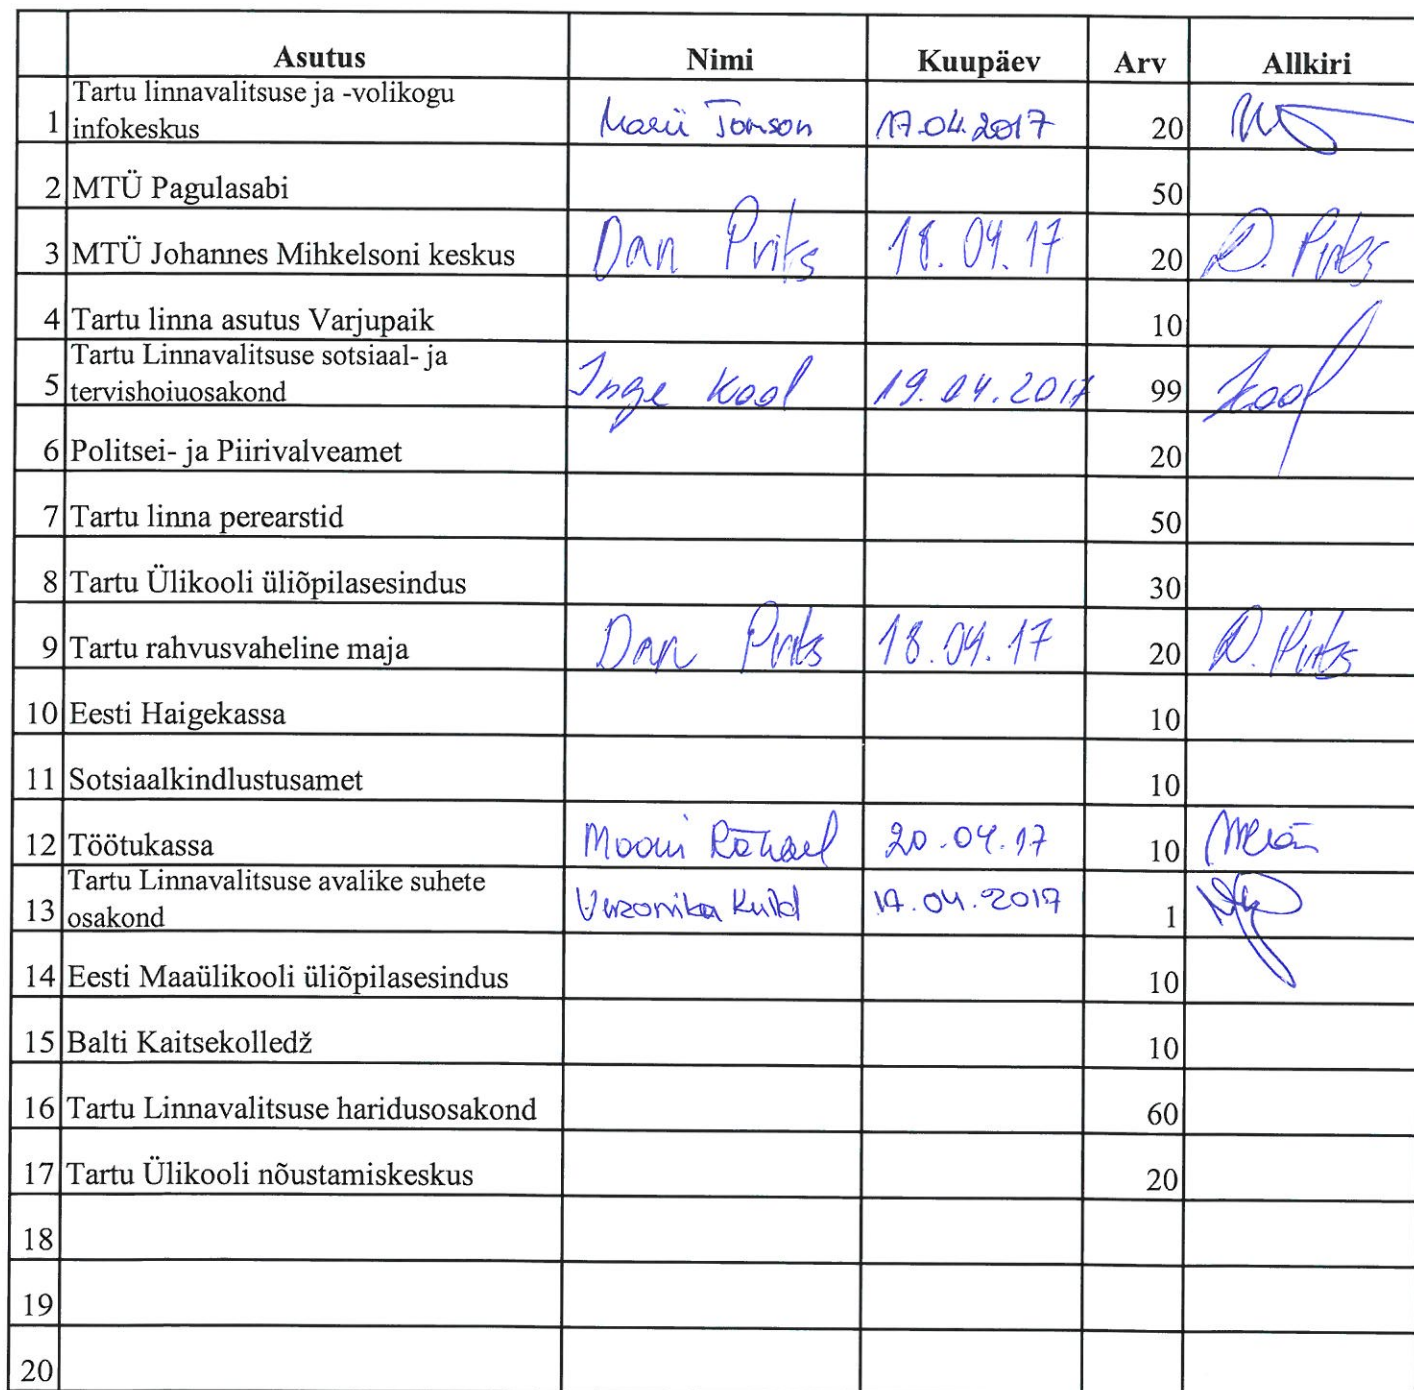 Asutus Nimi Kuupäev Arv Allkiri
Tartu linnavalitsuse ja -volikogu
1 infokeskus Marii Tomson 17.04.2017 20
2 MTÜ Pagulasabi 50
3 MTÜ Johannes Mihkelsoni keskus Dan Prits 18.04.17 20 D. Prits
4 Tartu linna asutus Varjupaik 10
Tartu Linnavalitsuse sotsiaal- ja
5 tervishoiuosakond Inge Kool 19.04.2017 99 Kool
6 Politsei- ja Piirivalveamet 20
7 Tartu linna perearstid 50
8 Tartu Ülikooli üliõpilasesindus 30
9 Tartu rahvusvaheline maja Dan Prits 18.04.17 20 D. Prits
10 Eesti Haigekassa 10
11 Sotsiaalkindlustusamet 10
12 Töötukassa 20.04.17 10
Tartu Linnavalitsuse avalike suhete
13 osakond Veronika Kuild 17.04.2017 1
14 Eesti Maaülikooli üliõpilasesindus 10
15 Balti Kaitsekolledž 10
16 Tartu Linnavalitsuse haridusosakond 60
17 Tartu Ülikooli nõustamiskeskus 20
18
19
20